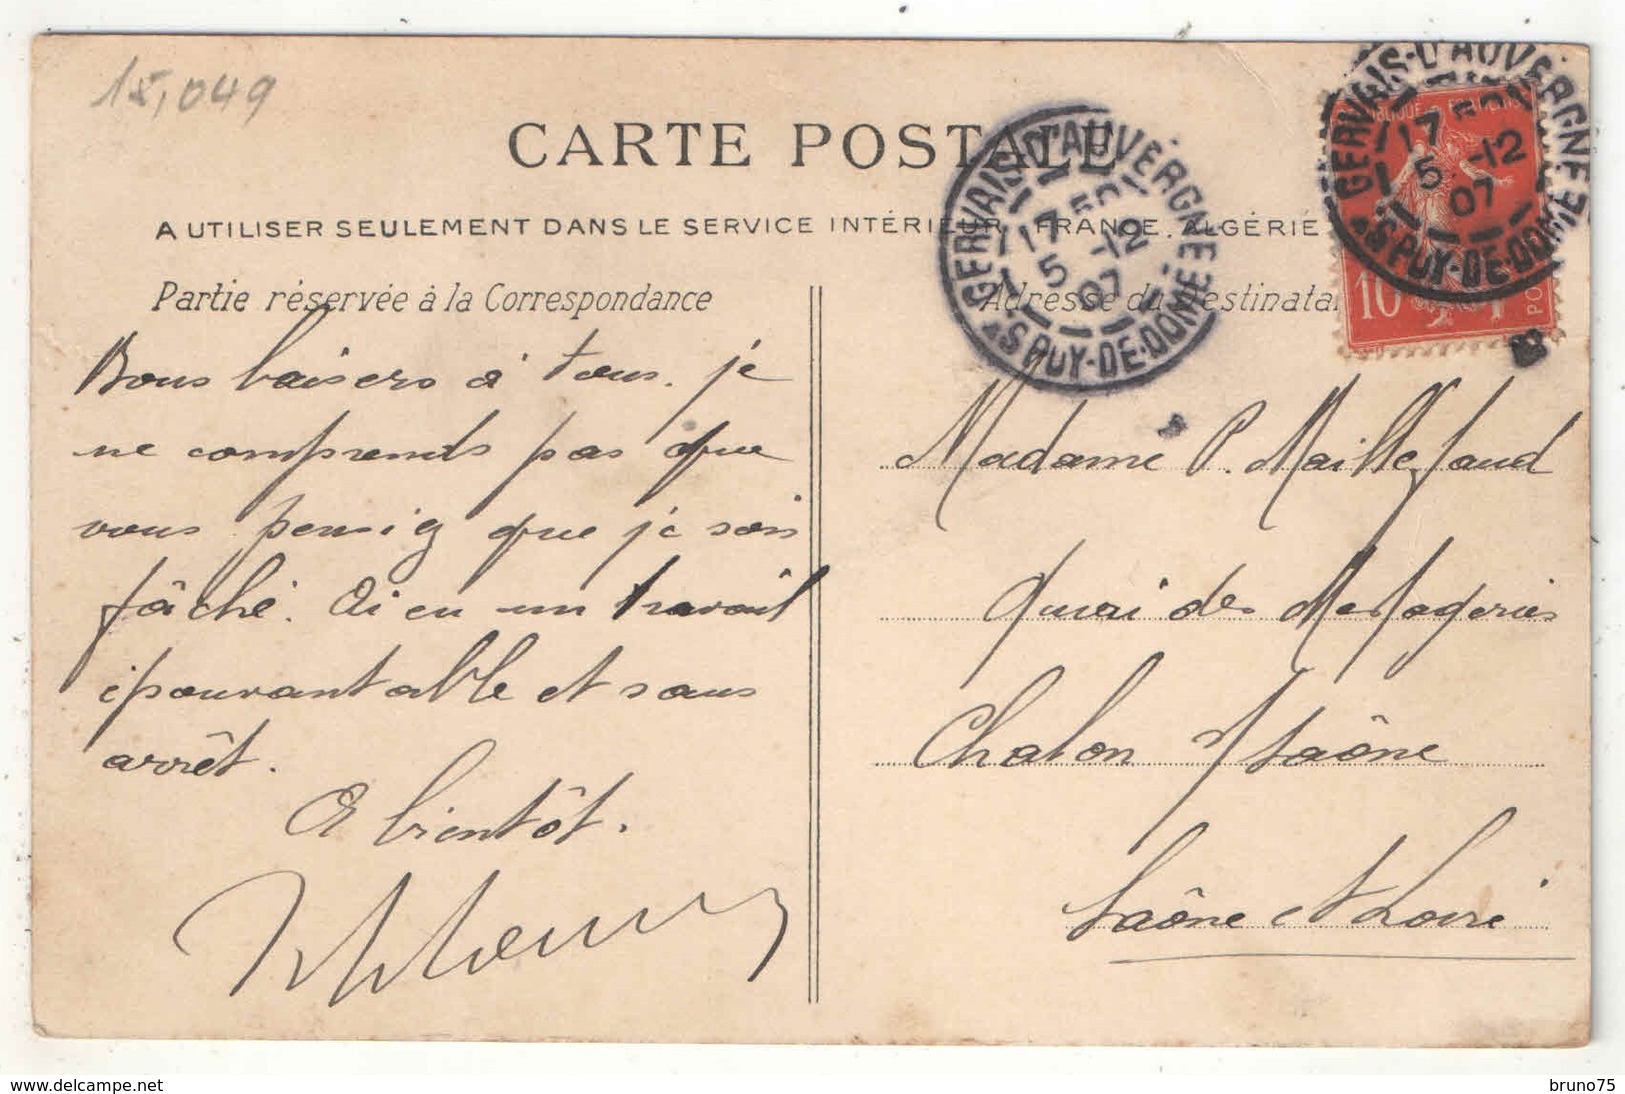 15,049
CARTE POSTALE
A UTILISER SEULEMENT DANS LE SERVICE INTÉRIEUR, FRANCE, ALGÉRIE
Partie réservée à la Correspondance
Adresse du Destinatai
Bons baisers à tous. je
ne comprends pas que
vous pensiez que je sois
fâché. Ai eu un travail
épouvantable et sans
arrêt.
A bientôt.
Madame P. Maillefaud
Quai des Messageries
Chalon s/ Saône
Saône et Loire
GERVAIS-D'AUVERGNE
17 50
5 -12
07
PUY-DE-DOME
GERVAIS-D'AUVERGNE
17 50
5 -12
07
PUY-DE-DOME
10
www.delcampe.net
bruno75